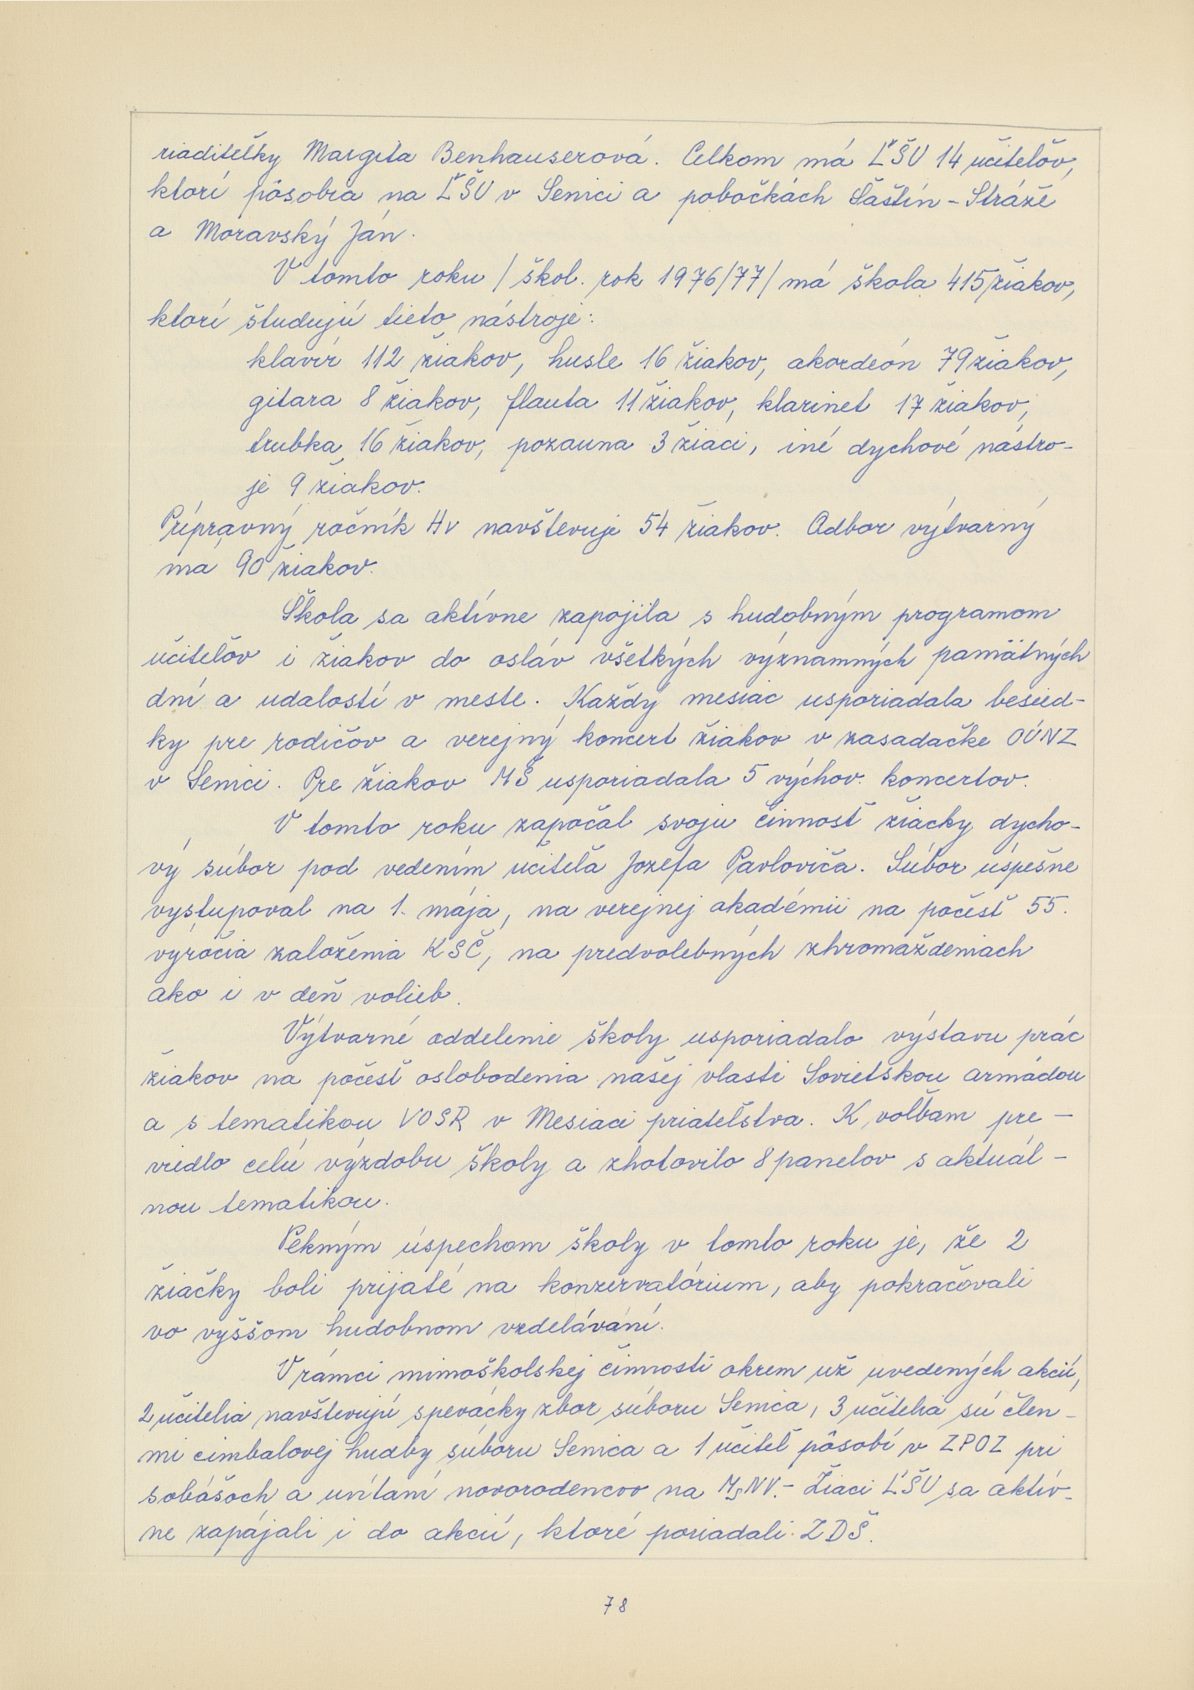 riaditeľky Margita Benhauserová. Celkom má ĽŠU 14 učiteľov,
ktorí pôsobia na ĽŠU v Senici a pobočkách Šaštín - Stráže
a Moravský Ján.
V tomto roku / škol. rok 1976/77/ má škola 415 žiakov,
ktorí študujú tieto nástroje:
klavír 112 žiakov, husle 16 žiakov, akordeón 79 žiakov,
gitara 8 žiakov, flauta 11 žiakov, klarinet 17 žiakov,
trubka 16 žiakov, pozauna 3 žiaci, iné dychové nástro-
je 9 žiakov.
Prípravný ročník Hv navštevuje 54 žiakov. Odbor výtvarný
ma 90 žiakov.
Škola sa aktívne zapojila s hudobným programom
učiteľov i žiakov do osláv všetkých významných pamätných
dní a udalostí v meste. Každý mesiac usporiadala besied-
ky pre rodičov a verejný koncert žiakov v zasadačke OÚNZ
v Senici. Pre žiakov MŠ usporiadala 5 výchov. koncertov.
V tomto roku započal svoju činnosť žiacky dycho-
vý súbor pod vedením učiteľa Jozefa Pavloviča. Súbor úspešne
vystupoval na 1. mája, na verejnej akadémii na počesť 55.
výročia založenia KSČ, na predvolebných zhromaždeniach
ako i v deň volieb.
Výtvarné oddelenie školy usporiadalo výstavu prác
žiakov na počesť oslobodenia našej vlasti Sovietskou armádou
a s tematikou VOSR v Mesiaci priateľstva. K voľbam pre-
viedlo celú výzdobu školy a zhotovilo 8 panelov s aktuál-
nou tematikou.
Pekným úspechom školy v tomto roku je, že 2
žiačky boli prijaté na konzervatórium, aby pokračovali
vo vyššom hudobnom vzdelávaní.
V rámci mimoškolskej činnosti okrem už uvedených akcií,
2 učitelia navštevujú spevácky zbor súboru Senica, 3 učitelia sú člen-
mi cimbalovej hudby súboru Senica a 1 učiteľ pôsobí v ZPOZ pri
sobášoch a uvítaní novorodencov na MsNV.- Žiaci ĽŠU sa aktív-
ne zapájali i do akcií, ktoré poriadali ZDŠ.
78